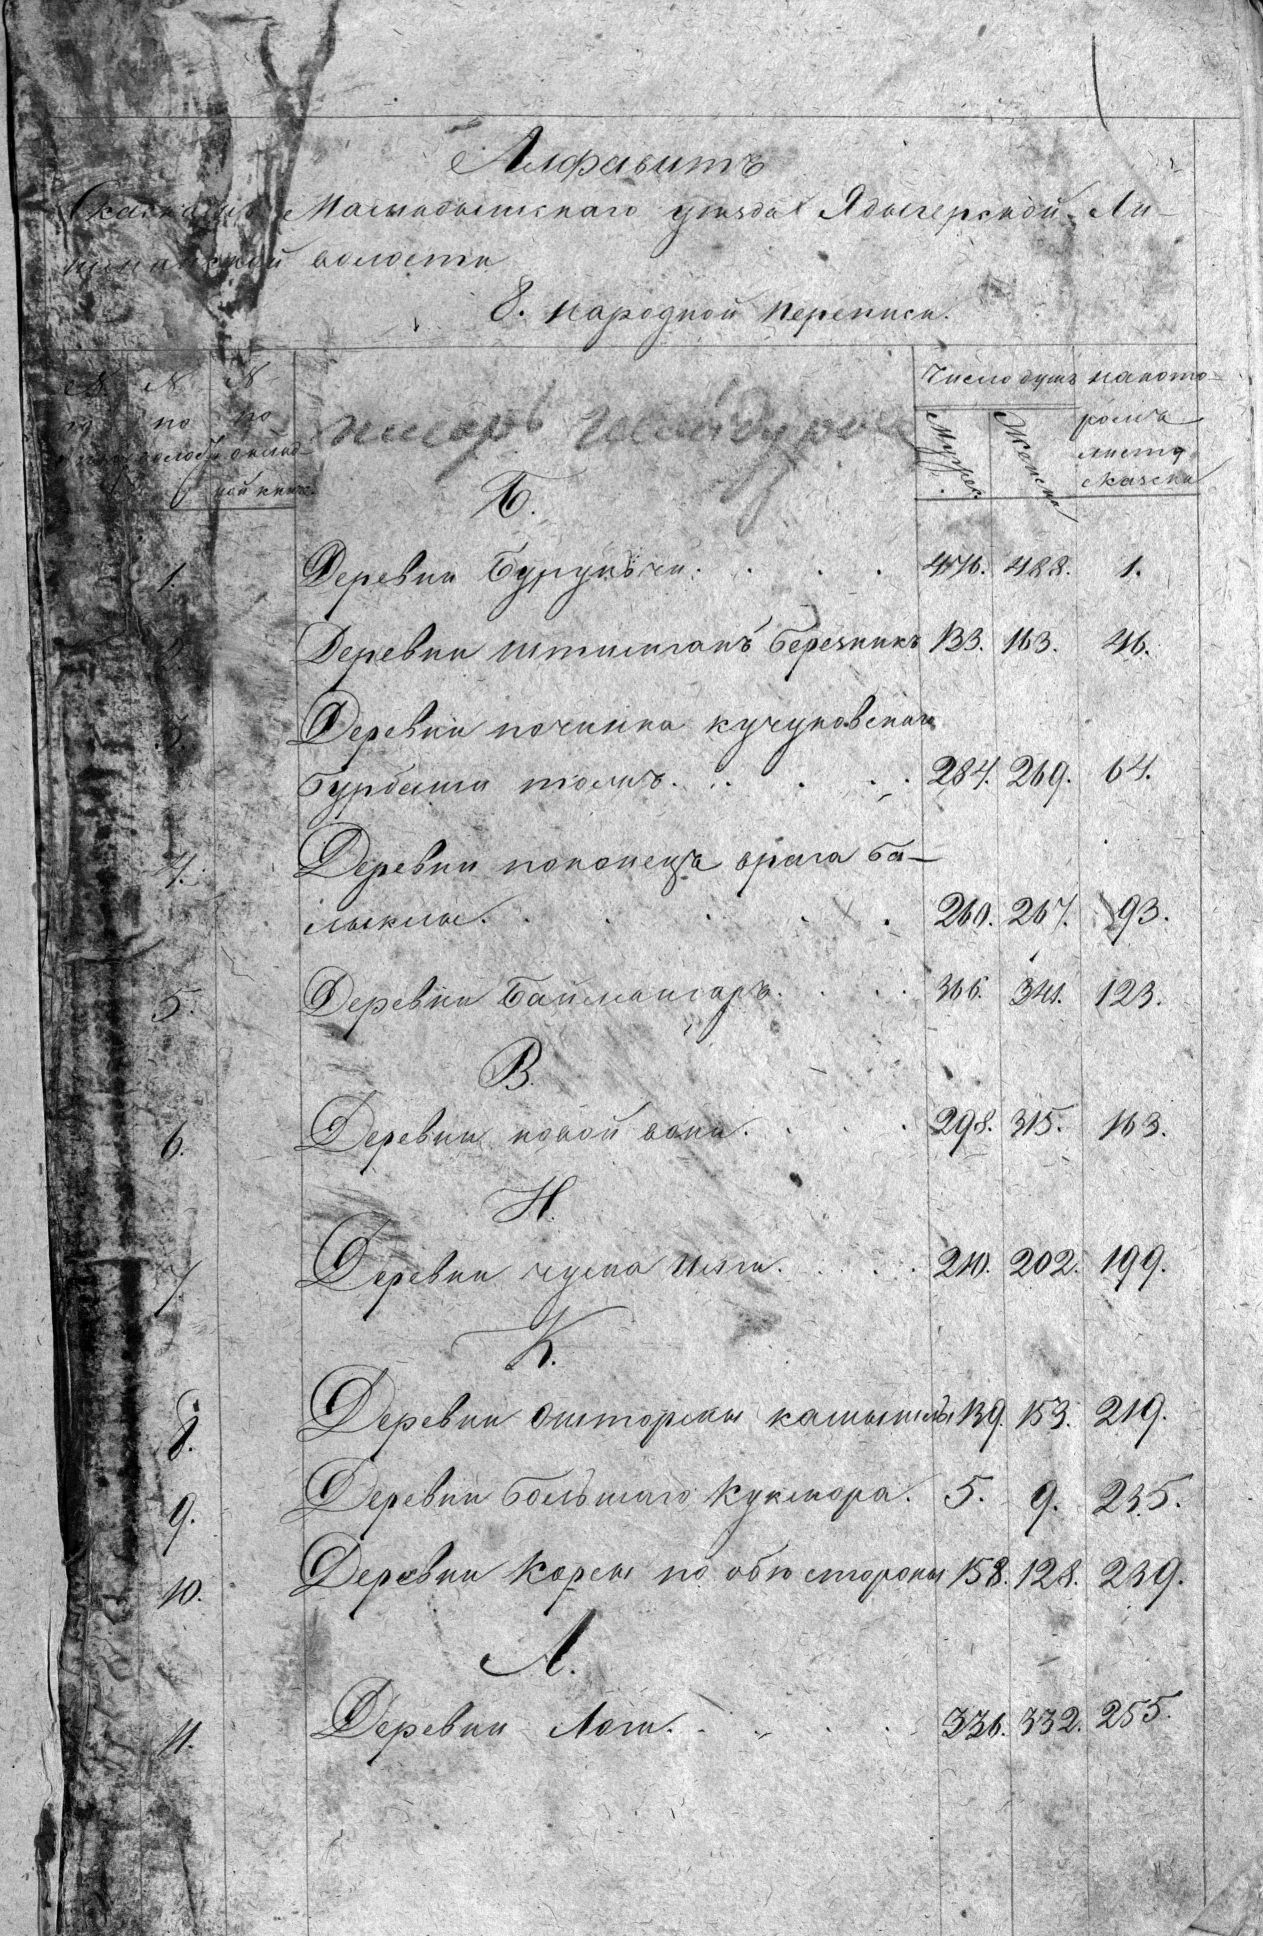 Алфавитъ
Сказкамъ Мамадышскаго уѣзда Ядыгерской Ли-
волости
8. народной переписи.
№ № №
по по
Число душъ
Мужеск. Женска
на кото-
ромъ
листѣ
сказка
Б.
1. Деревни Бурунъчи. 476. 488. 1.
2. Деревни иштиганъ березникъ 133. 163. 46.
3. Деревни починка кучуковскаго
бурбаши тожъ. 284. 269. 64.
4. Деревни поконецъ врага ба-
лыклы. 260. 267. 93.
5. Деревни Байлангаръ. 366. 341. 123.
В.
6. Деревни новой вани. 298. 315. 163.
И.
7. Деревни чулпа илги. 210. 202. 199.
К.
8. Деревни оштормы камышлы 139. 153. 219.
9. Деревни большаго Кукмора. 5. 9. 235.
10. Деревни Корсы по обѣ стороны 158. 128. 239.
Л.
11. Деревни Логи. 336. 332. 255.